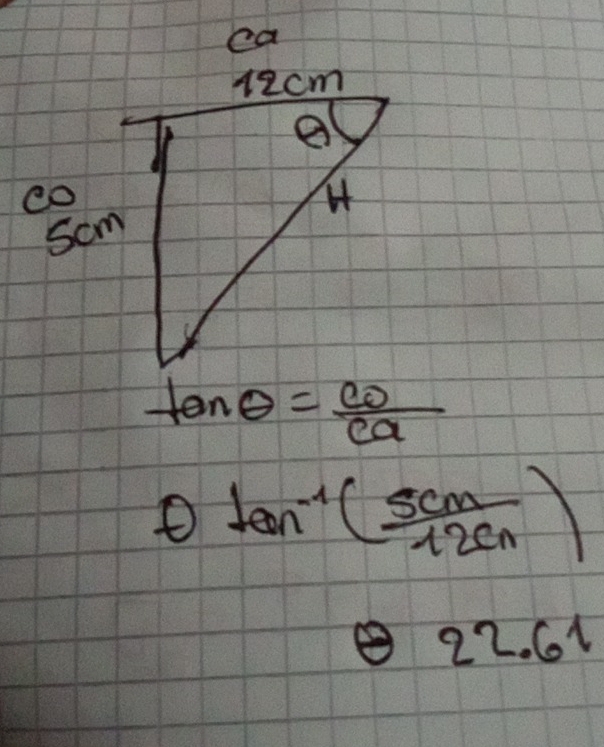 ca
12cm
θ
co
5cm
H
tanθ = co/ca
θ tan⁻¹(5cm/12cm)
θ 22.61